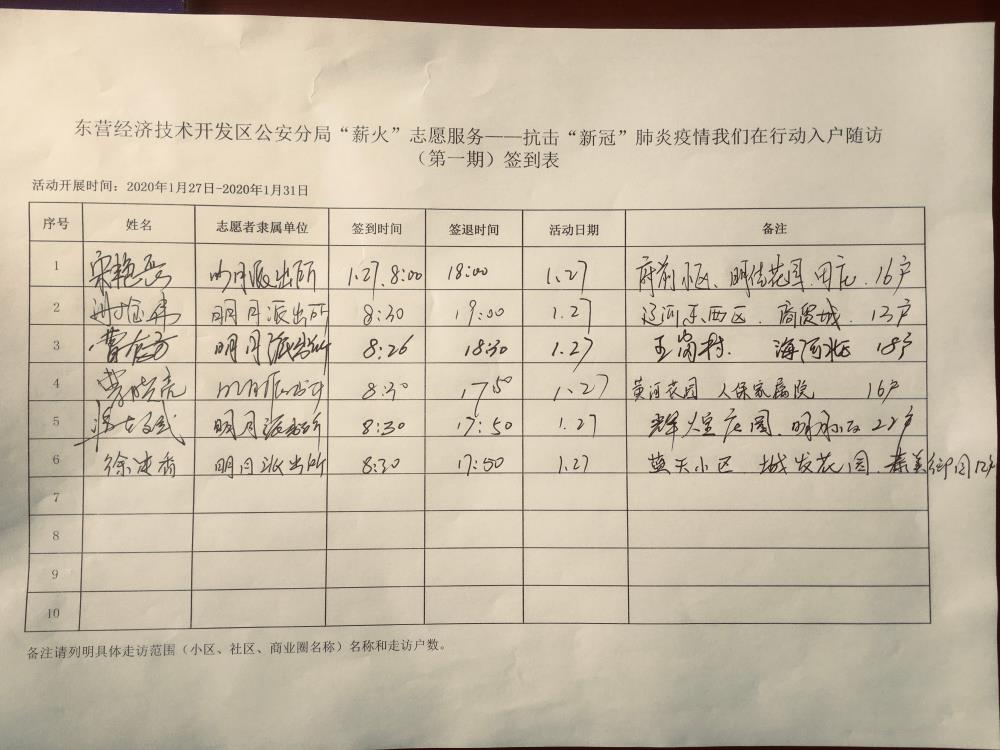 东营经济技术开发区公安分局“薪火”志愿服务——抗击“新冠”肺炎疫情我们在行动入户随访
（第一期）签到表
活动开展时间：2020年1月27日-2020年1月31日
序号 姓名 志愿者隶属单位 签到时间 签退时间 活动日期 备注
1 宋艳 明月派出所 1.27.8:00 18:00 1.27 府前小区、明佳花园 16户
2 明月派出所 8:30 19:00 1.27 辽河东西区、商贸城、13户
3 明月派出所 8:26 18:30 1.27 王岗村、 18户
4 明月派出所 8:30 17:50 1.27 黄河花园 人保家属院 16户
5 明月派出所 8:30 17:50 1.27 辉煌庄园、 22户
6 徐建香 明月派出所 8:30 17:50 1.27 蓝天小区、城发花园、 12户
7
8
9
10
备注请列明具体走访范围（小区、社区、商业圈名称）名称和走访户数。